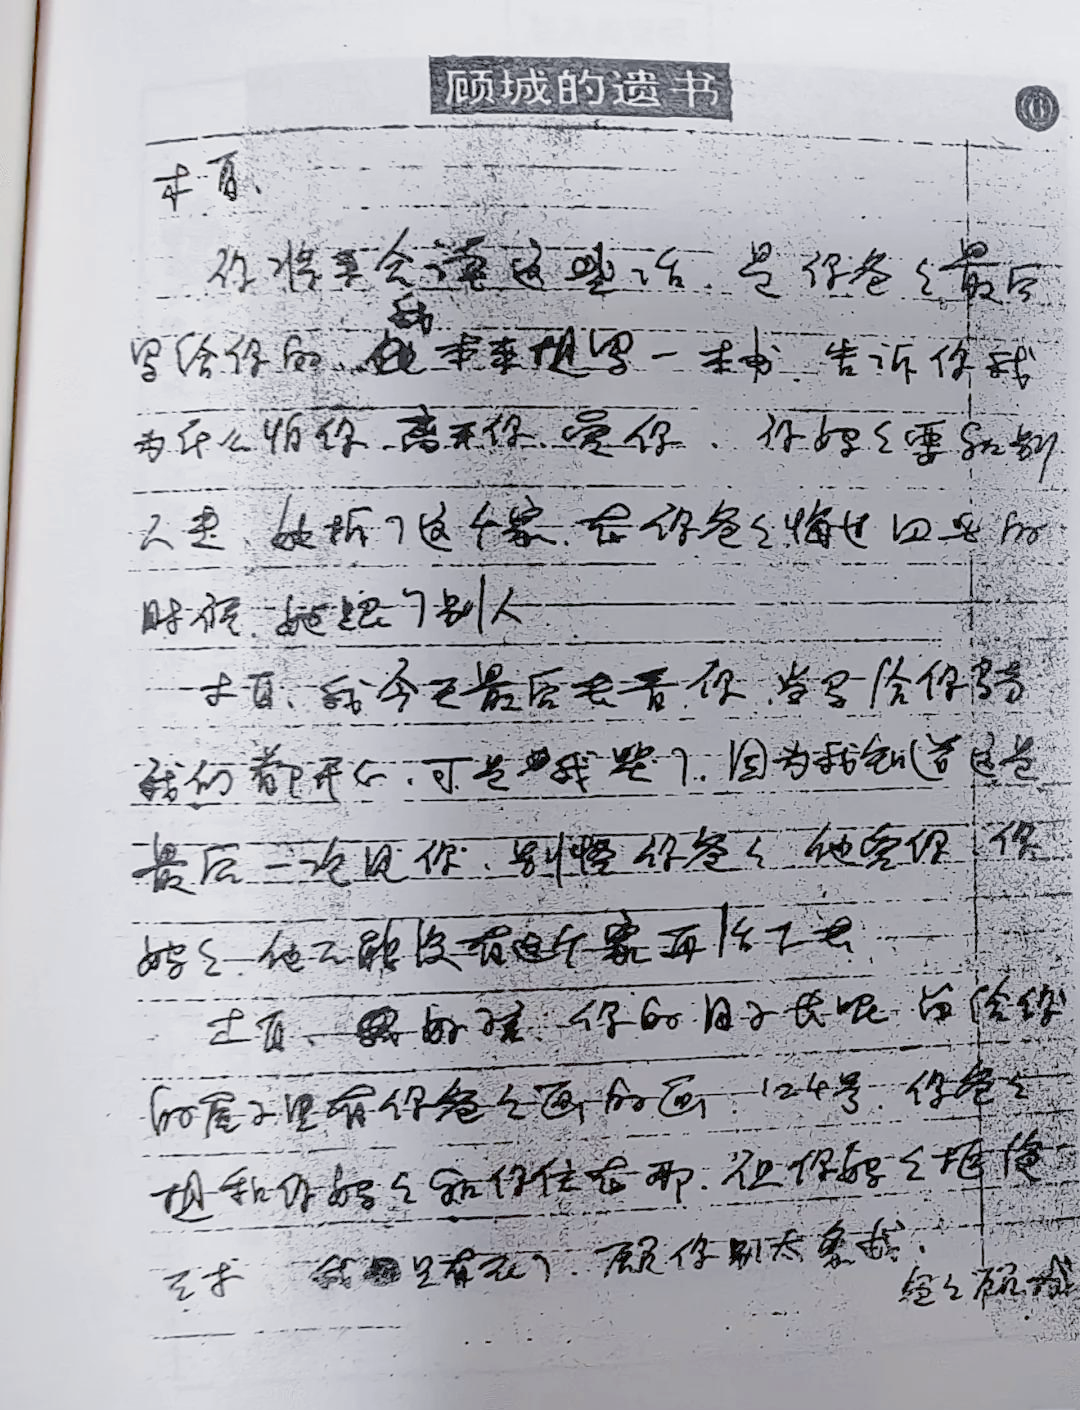 顾城的遗书
木耳、
你将来会读这些话，是你爸爸最后
我
写给你的，本来想写一本书，告诉你我
为什么怕你、离开你、爱你，你妈妈要和别
人走，她拆了这个家，在你爸爸悔过回头的
时候，她跟了别人
木耳，我今天最后去看你，当马给你骑
我们都开心，可是我哭了，因为我知道这是
最后一次见你，别怪你爸爸，他爱你 你
妈妈，他不能没有这个家再活下去
木耳，我的孩，你的日子长呢，留给你
的屋子里有你爸爸画的画，124号，你爸爸
想和你妈妈和你住在那，但你妈妈拒绝
三木 我只有死了，愿你别太像我，
爸爸顾城